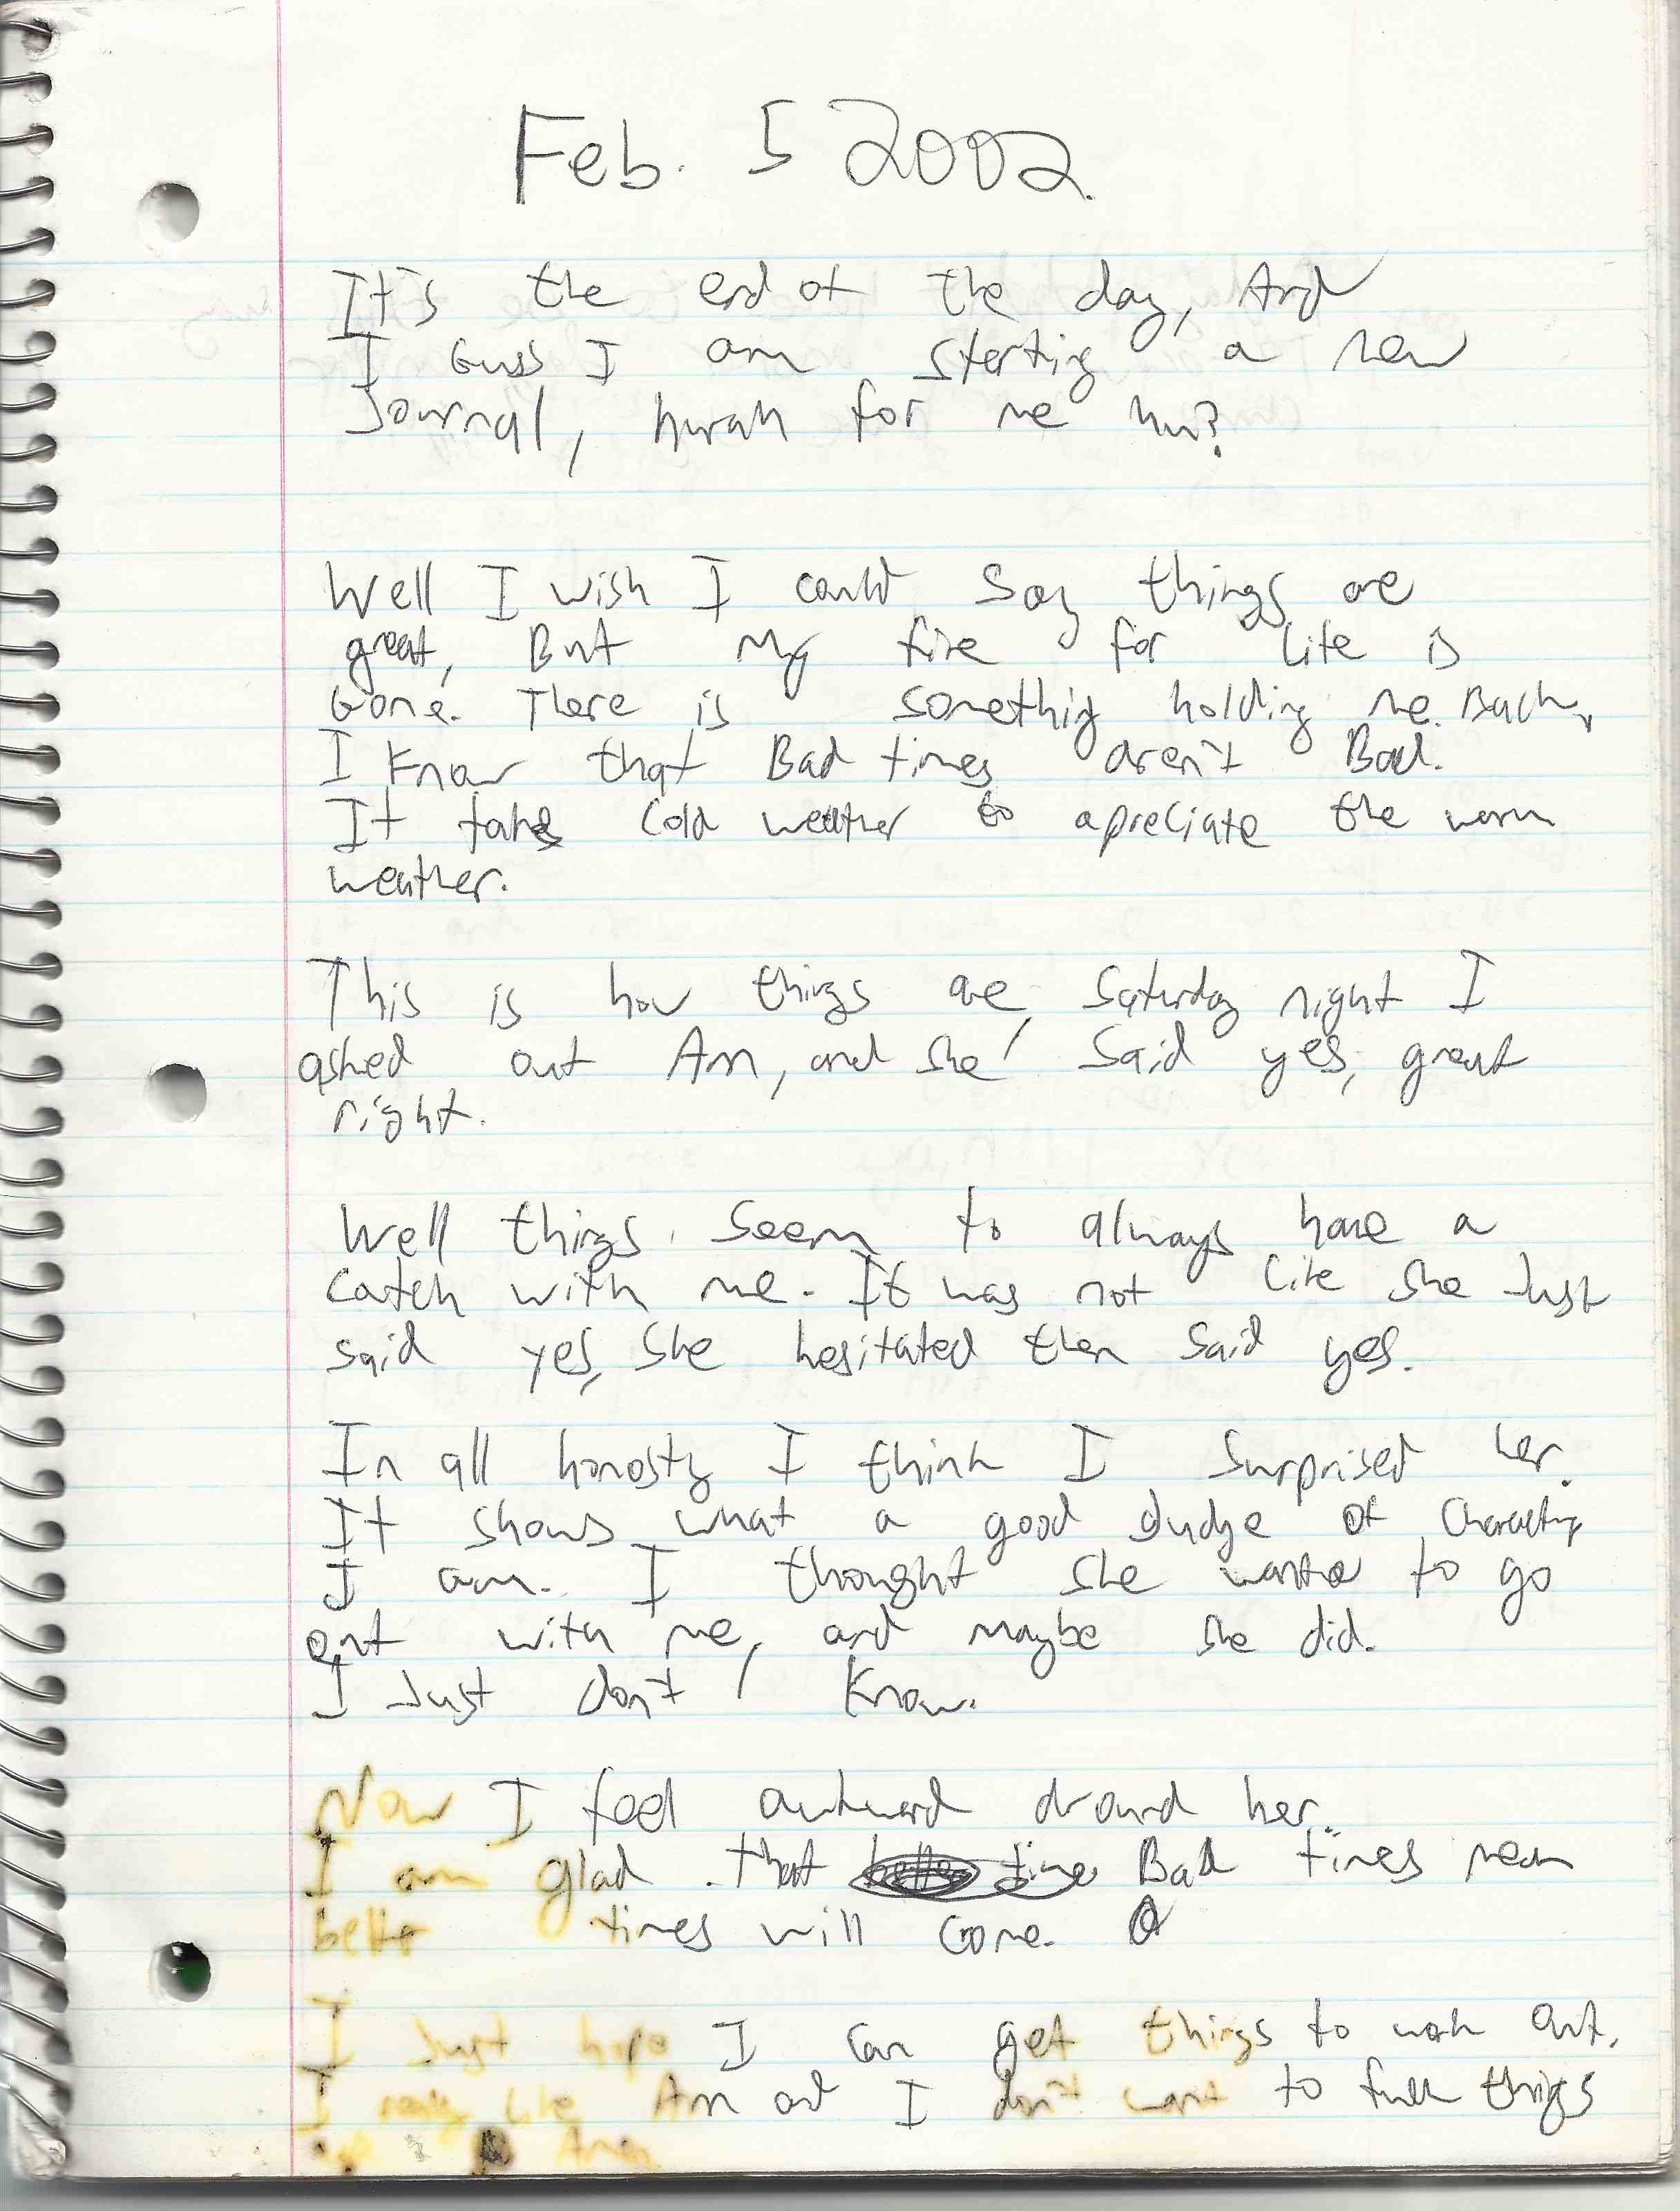 Feb. 5 2002
It's the end of the day, And
I Guss I am sterting a new
Journal, hurah for me hu?
Well I wish I could say things are
great, But my fire for life is
Gone. There is something holding me Back,
I Know that Bad times aren't Bad.
It takes cold weather to apreciate the warm
weather.
This is how things are, Saturday night I
asked out Ann, and she said yes, great
right.
Well things seem to always have a
catch with me. It was not like she Just
said yes, she hesitated then said yes.
In all honosty I think I surprised her.
It shows what a good Judge of
I am. I thought she wanted to go
out with me, and maybe she did.
I Just don't Know.
Now I feel awkward around her.
I am glad that Bad times mean
better times will come.
I Just hope I can get things to work out.
I really like Ann and I don't want to fuck things